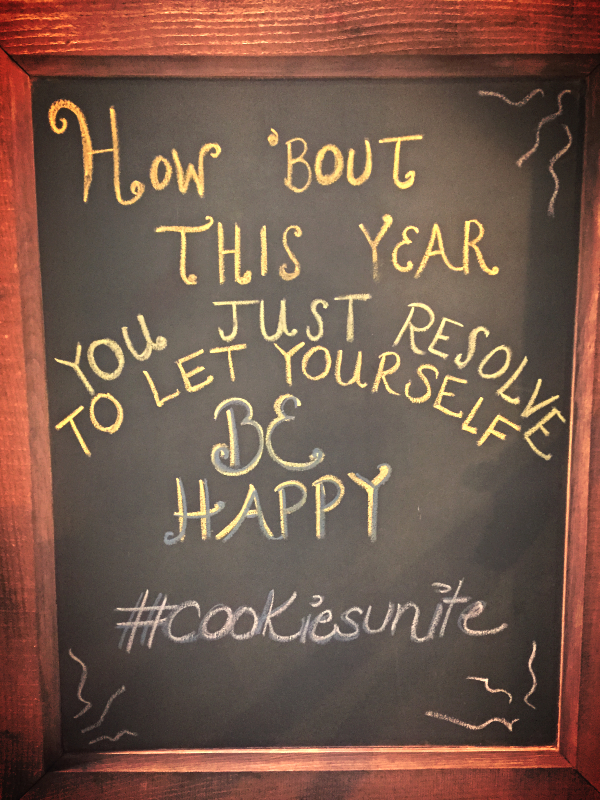 How 'Bout
THIS YEAR
YOU JUST RESOLVE
TO LET YOURSELF
BE
HAPPY
#cookiesunite